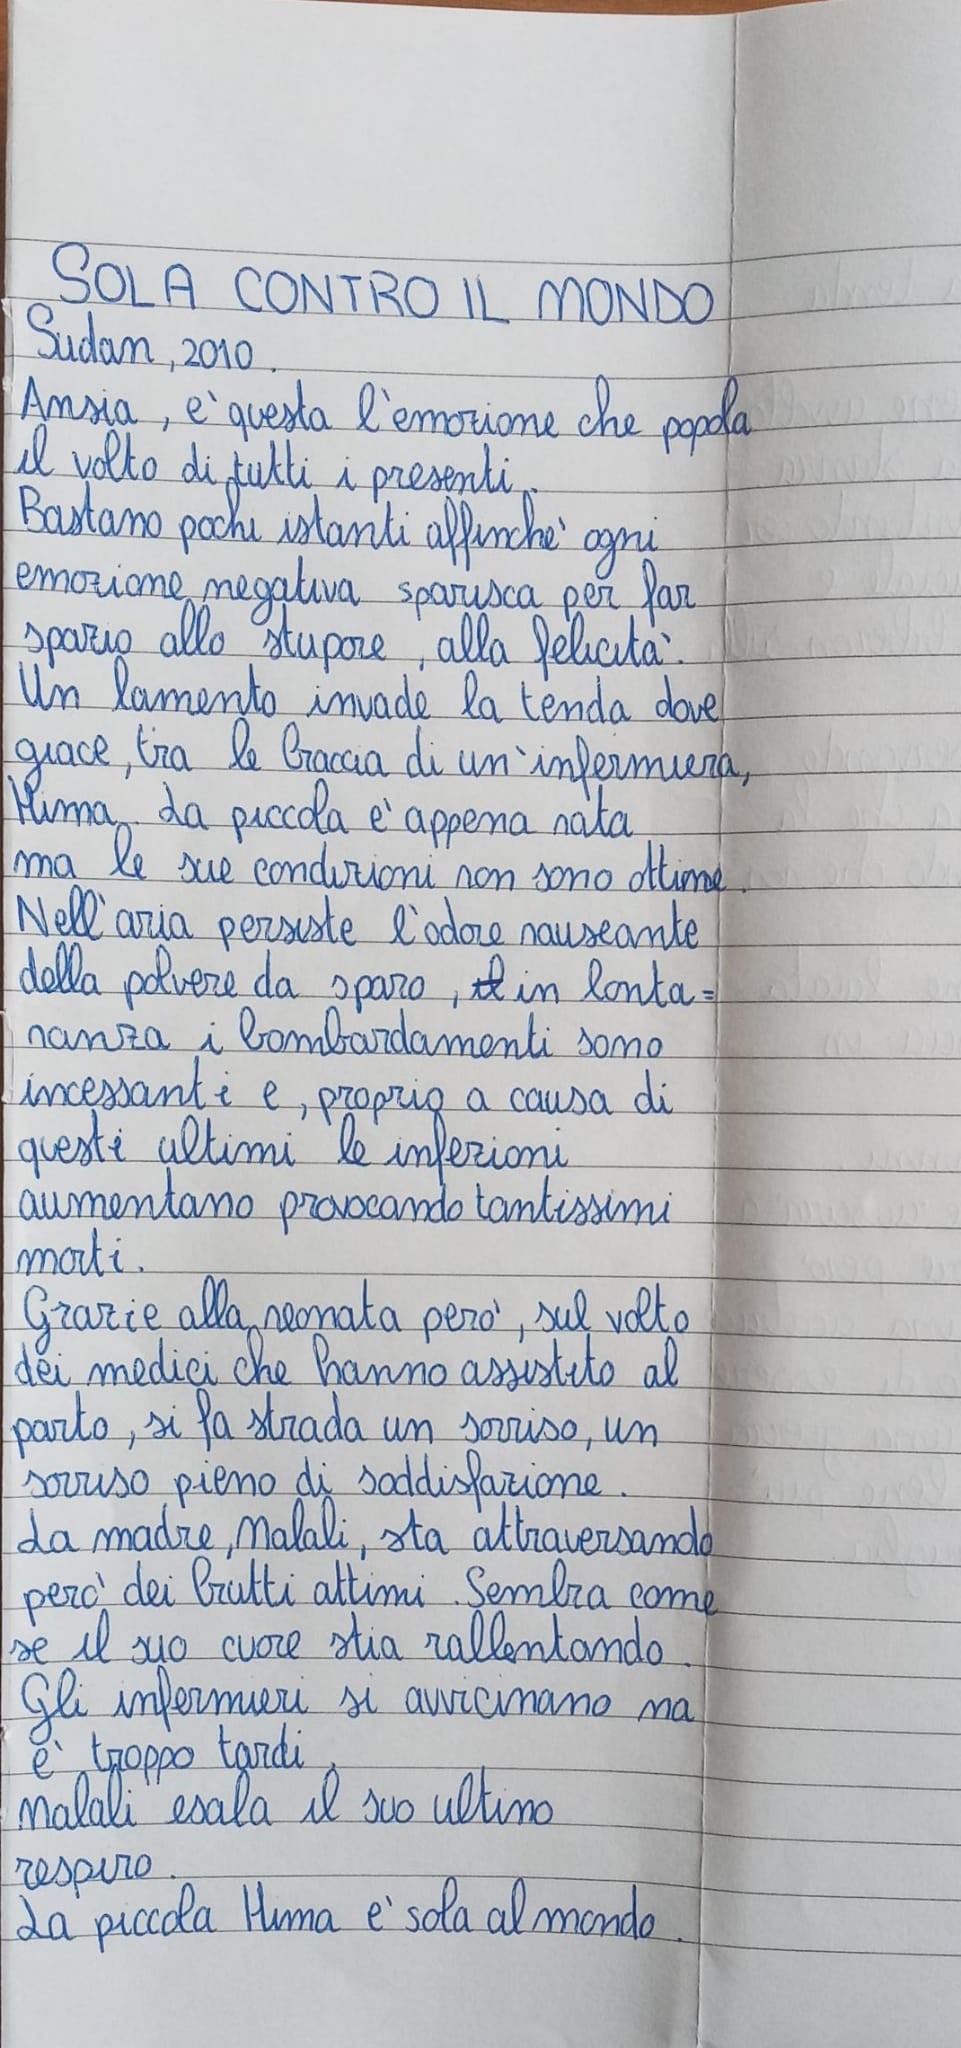 SOLA CONTRO IL MONDO
Sudan, 2010.
Ansia, è questa l'emozione che popola
il volto di tutti i presenti.
Bastano pochi istanti affinchè ogni
emozione negativa sparisca per far
spazio allo stupore, alla felicità.
Un lamento invade la tenda dove
giace, tra le braccia di un'infermiera,
Hima. La piccola è appena nata
ma le sue condizioni non sono ottime.
Nell'aria persiste l'odore nauseante
della polvere da sparo, in lonta=
nanza i bombardamenti sono
incessanti e, proprio a causa di
questi ultimi le infezioni
aumentano provocando tantissimi
morti.
Grazie alla neonata però, sul volto
dei medici che hanno assistito al
parto, si fa strada un sorriso, un
sorriso pieno di soddisfazione.
La madre, Malali, sta attraversando
però dei brutti attimi. Sembra come
se il suo cuore stia rallentando.
Gli infermieri si avvicinano ma
è troppo tardi,
Malali esala il suo ultimo
respiro.
La piccola Hima è sola al mondo.